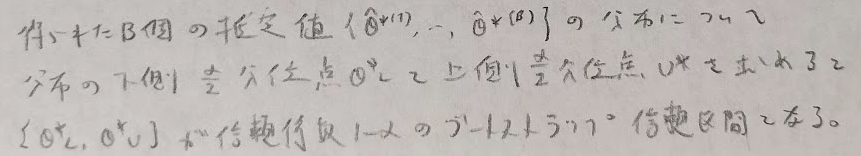 得られたB個の推定値 {θ̂*(1), …, θ̂*(B)} の分布について
分布の下側 α/2 分位点 θ*L と上側 α/2 分位点 U* を求めると
[θ*L, θ*U] が信頼係数 1-α のブートストラップ信頼区間となる。